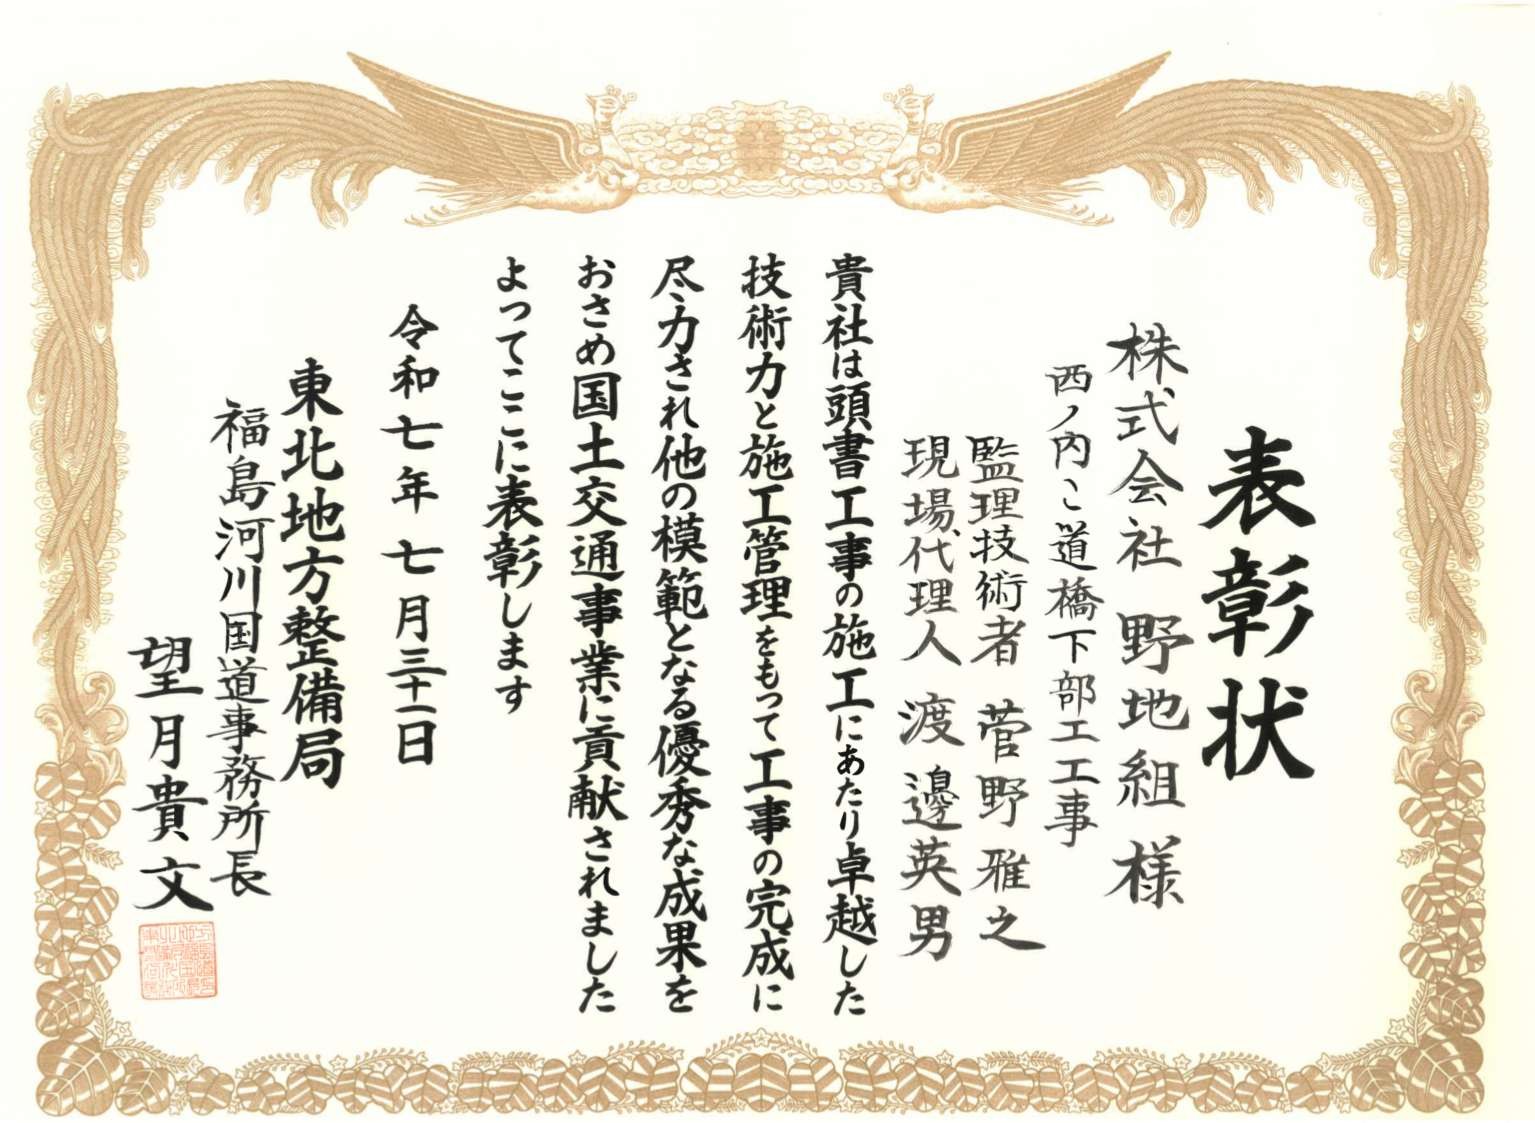 表彰状
株式会社 野地組 様
西ノ内こ道橋下部工工事
監理技術者 菅野雅之
現場代理人 渡邊英男
貴社は頭書工事の施工にあたり卓越した
技術力と施工管理をもって工事の完成に
尽力され他の模範となる優秀な成果を
おさめ国土交通事業に貢献されました
よってここに表彰します
令和七年七月三十一日
東北地方整備局
福島河川国道事務所長
望月貴文